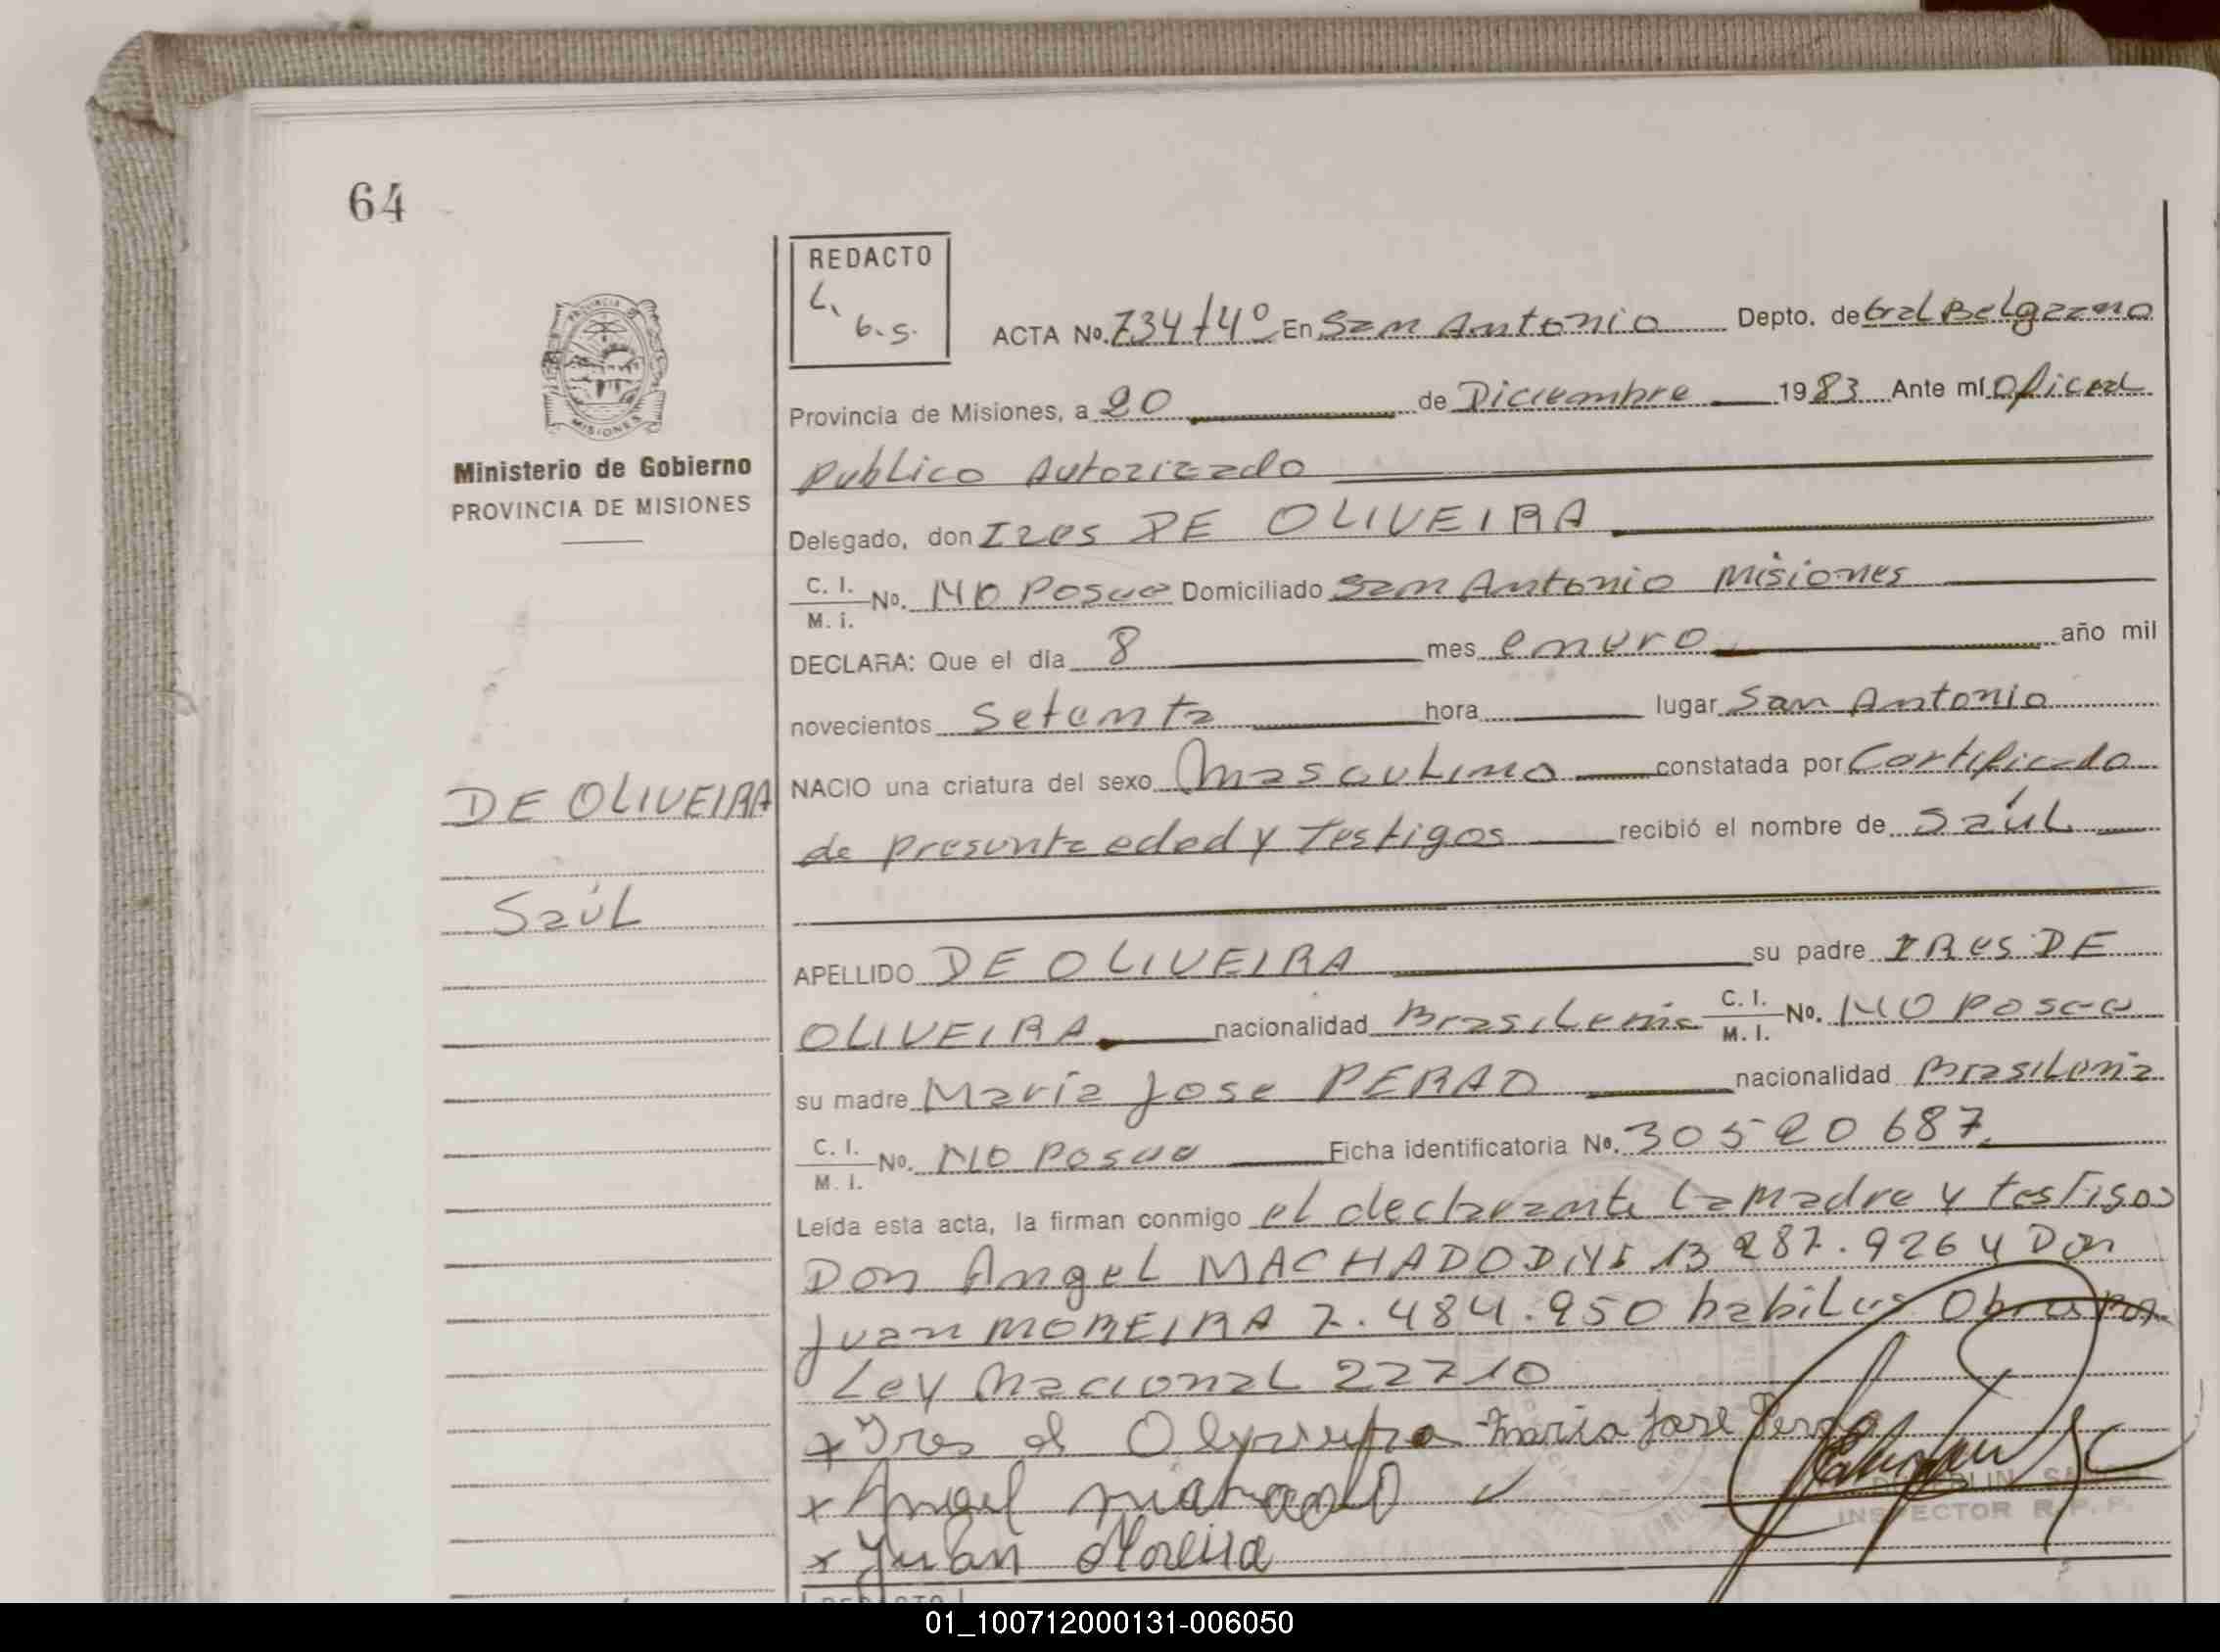 64
REDACTO
L.
G.S.
PROVINCIA
MISIONES
Ministerio de Gobierno
PROVINCIA DE MISIONES
ACTA No. 734/4º En San Antonio Depto. de Gral Belgrano
Provincia de Misiones, a 20 de Diciembre 1983 Ante mí Oficial
Publico Autorizado
Delegado, don Ires DE OLIVEIRA
C. I.
M. i. No. No Posee Domiciliado San Antonio Misiones
DECLARA: Que el día 8 mes enero año mil
novecientos Setenta hora lugar San Antonio
NACIO una criatura del sexo Masculino constatada por Certificado
de presunta edad y Testigos recibió el nombre de Saúl
DE OLIVEIRA
Saúl
APELLIDO DE OLIVEIRA su padre IRes DE
OLIVEIRA nacionalidad Brasileña C. I.
M. I. No. No Posee
su madre María Jose PERAO nacionalidad Brasileña
C. I.
M. I. No. No Posee Ficha identificatoria No. 30520687
Leída esta acta, la firman conmigo el declarante la madre y testigos
Don Angel MACHADO DNI 13 287.926 y Don
Juan MOREIRA 7.484.950 habiles
Ley Nacional 22710
x Ires
Maria Jose
x Angel
x Juan Moreira
INSPECTOR R.P.P.
REDACTO
01_100712000131-006050